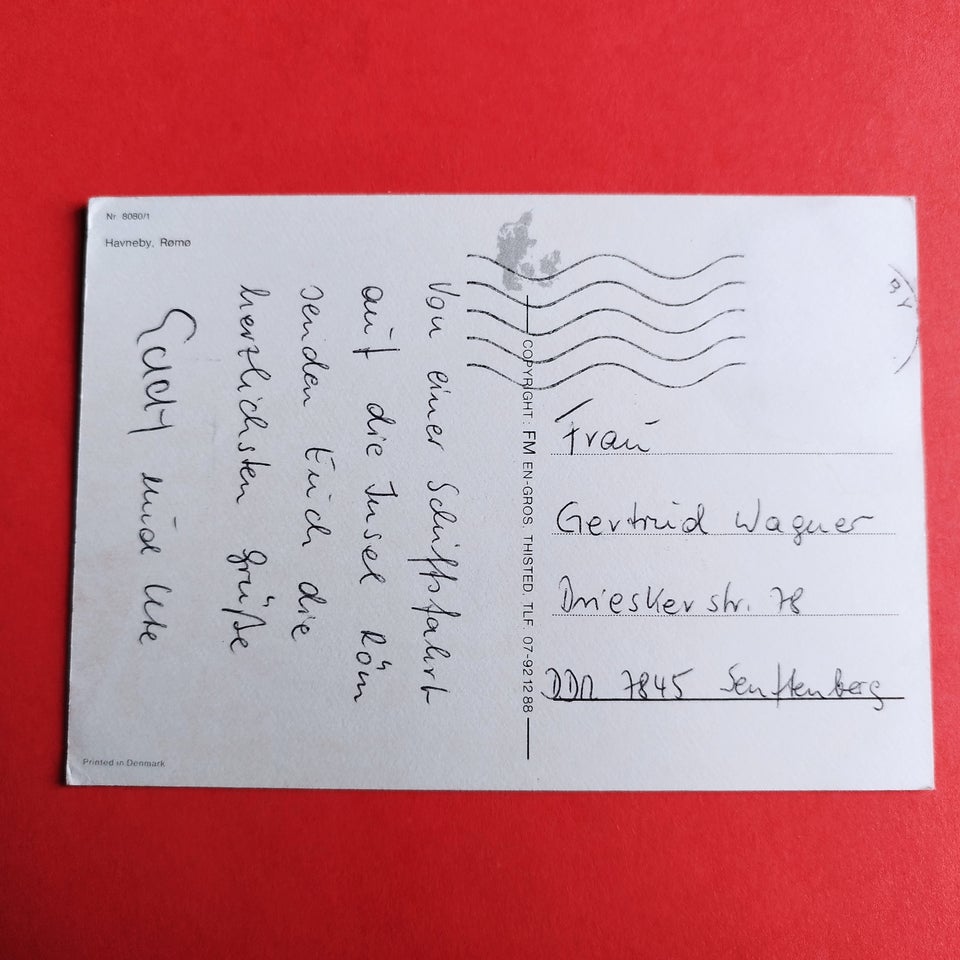 Nr. 8080/1
Havneby, Rømø
Von einer Schiffsfahrt
auf die Insel Röm
senden Euch die
herzlichsten Grüße
und Ute
Printed in Denmark
COPYRIGHT: FM EN-GROS. THISTED. TLF. 07-92 12 88
Frau
Gertrud Wagner
Drieskerstr. 78
DDR 7845 Senftenberg